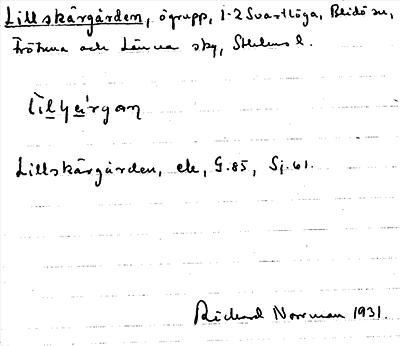 Lillskärgården, ögrupp, 1-2 Svartlöga, Blidö sn,
Frötuna och Länna sky, Sthlms l.
Lillskärgården, ek, G.85, Sj.61.
Rickard Norrman 1931.